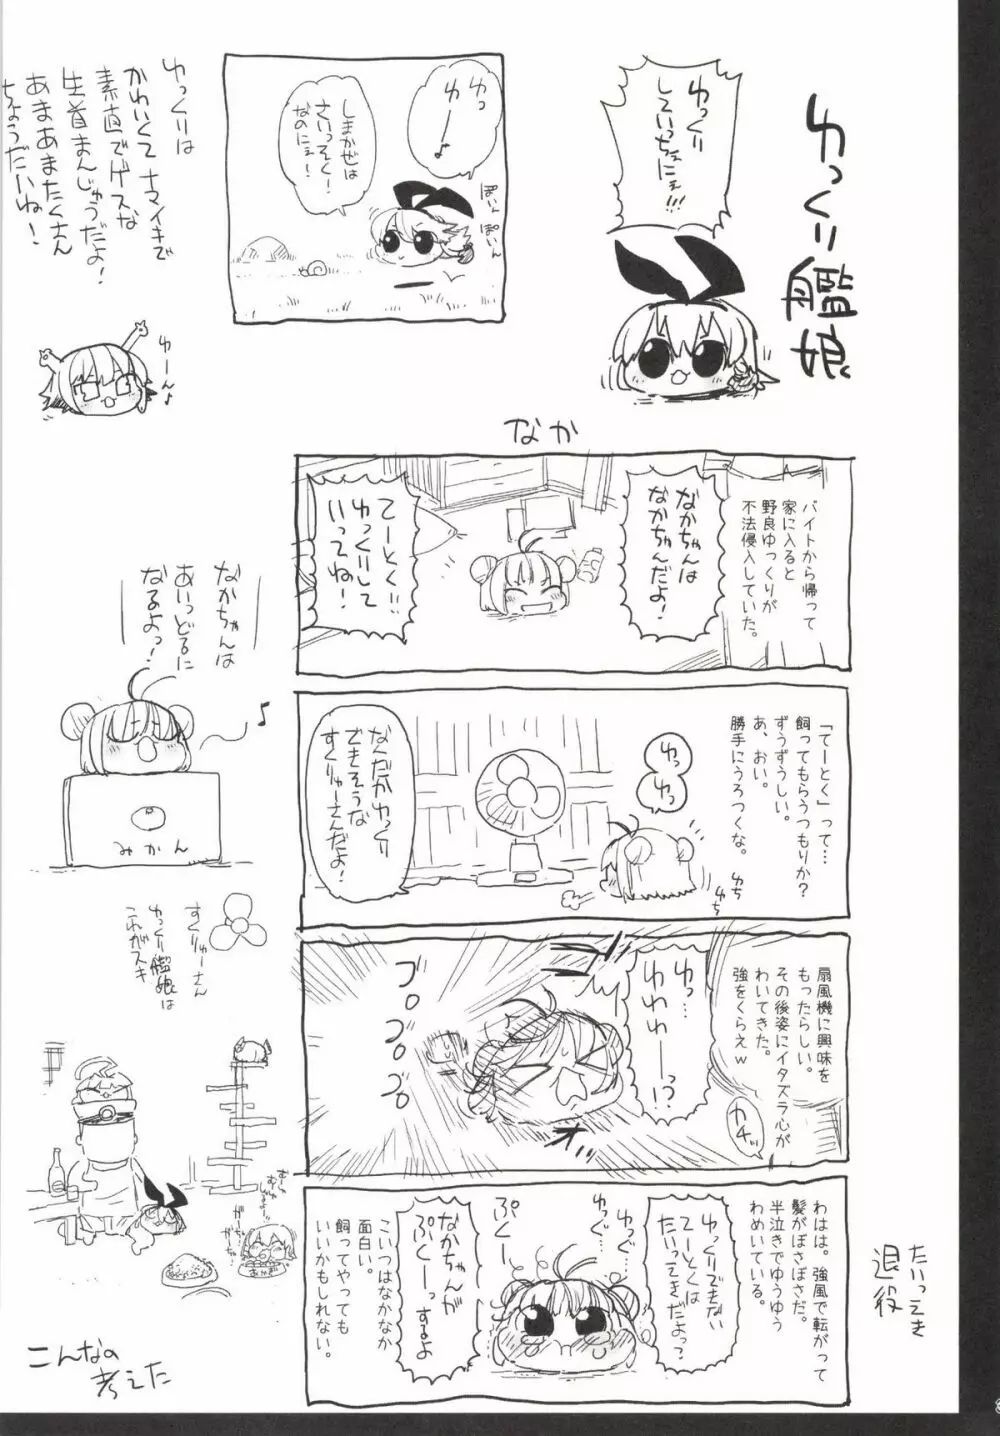 ゆっくり艦娘
ゆっくり
していっちぇにぇ!!!
ゆっ
ゆー♪
しまかぜは
さいっそく!
なのにぇ!
ぽいん
ぽいん
ゆっくりは
かわいくてナマイキで
素直でゲスな
生首まんじゅうだよ!
あまあまたくさん
ちょうだいね!
ゆーん♪
なか
バイトから帰って
家に入ると
野良ゆっくりが
不法侵入していた。
なかちゃんは
なかちゃんだよ!
てーとく!!
ゆっくりして
いってね!
「てーとく」って…
飼ってもらうつもりか?
ずうずうしい。
あ、おい。
勝手にうろつくな。
ゆっ
ゆっ
なんだかゆっくり
できそうな
すくりゅーさんだよ!
扇風機に興味を
もったらしい。
その後姿にイタズラ心が
わいてきた。
強をくらえw
カチッ
ゆっ…
ゆわわーっ!?
ブ
ブブブ
わはは。強風で転がって
髪がぼさぼさだ。
半泣きでゆうゆう
わめいている。
ゆっくりできない
てーとくは
たいえきだよっ?
ゆっぐ…
ゆっぐ…
ぷくー
なかちゃんが
ぷくーっするよ
こいつはなかなか
面白い。
飼ってやっても
いいかもしれない。
たいえき
退役
なかちゃんは
あいっどるに
なるよっ!
♪
みかん
すくりゅーさん
ゆっくり艦娘は
これがスキ
こんなの
考えた